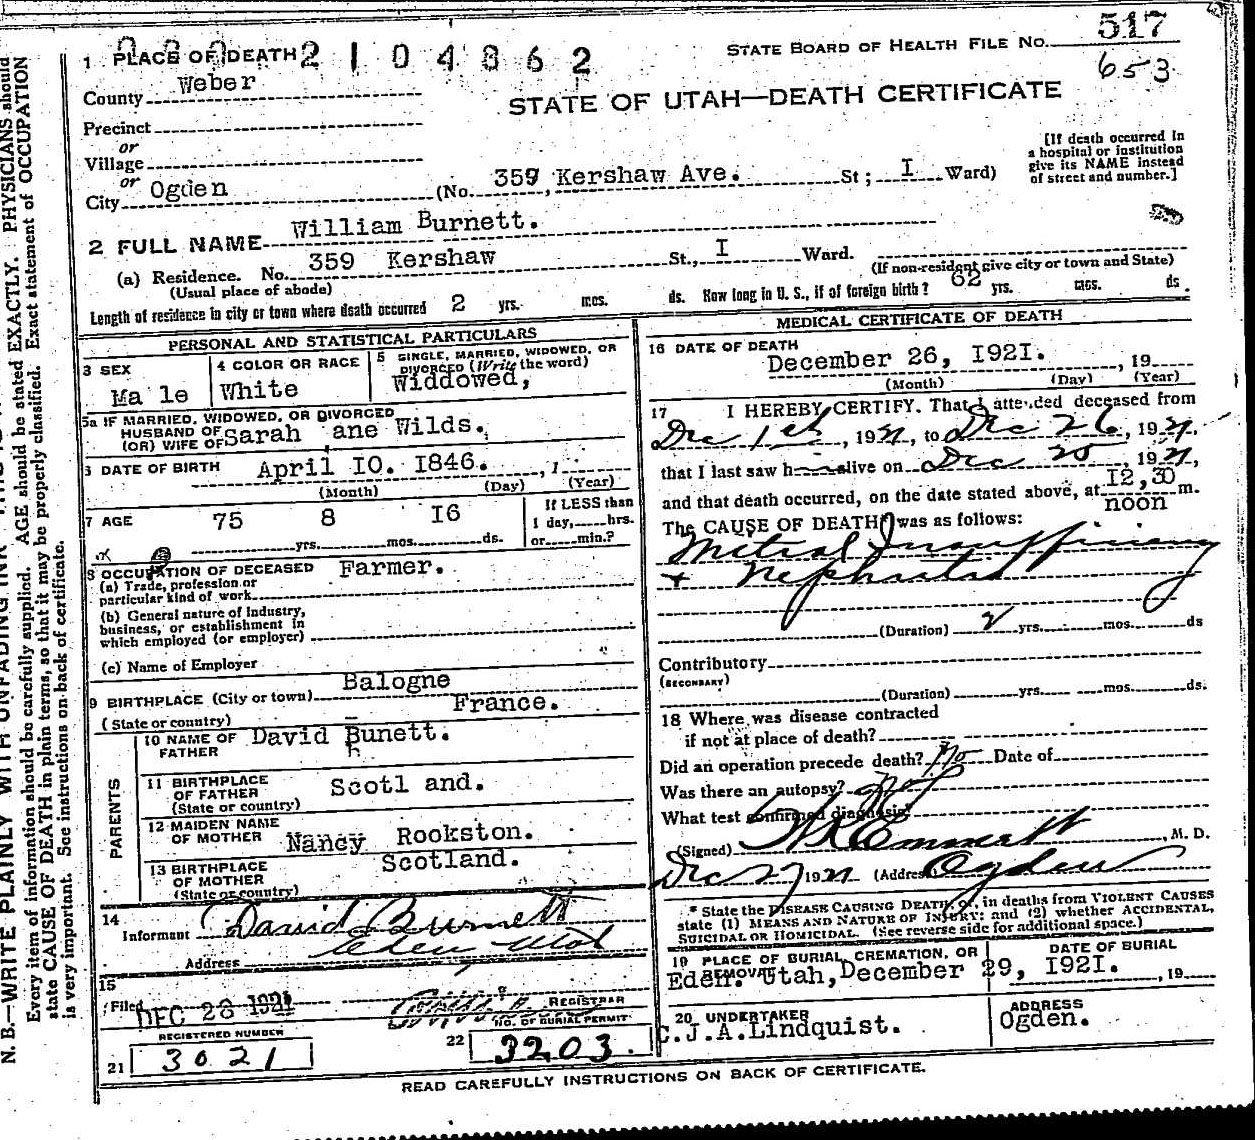 1 PLACE OF DEATH 2104862
STATE BOARD OF HEALTH FILE NO. 517
653
County Weber
STATE OF UTAH—DEATH CERTIFICATE
Precinct
or
Village
or
City Ogden (No. 359 Kershaw Ave. St; I Ward)
[If death occurred in
a hospital or institution
give its NAME instead
of street and number.]
2 FULL NAME William Burnett.
(a) Residence. No. 359 Kershaw St., I Ward.
(Usual place of abode)
(If non-resident give city or town and State)
Length of residence in city or town where death occurred 2 yrs. mos. ds. How long in U. S., if of foreign birth? 62 yrs. mos. ds.
PERSONAL AND STATISTICAL PARTICULARS
3 SEX
Ma le
4 COLOR OR RACE
White
5 SINGLE, MARRIED, WIDOWED, OR
DIVORCED (Write the word)
Widdowed,
5a IF MARRIED, WIDOWED, OR DIVORCED
HUSBAND OF
(OR) WIFE OF Sarah ane Wilds.
6 DATE OF BIRTH April IO. I846. , 1
(Month) (Day) (Year)
7 AGE 75 8 I6
yrs. mos. ds.
If LESS than
1 day, hrs.
or min.?
8 OCCUPATION OF DECEASED Farmer.
(a) Trade, profession or
particular kind of work
(b) General nature of industry,
business, or establishment in
which employed (or employer)
(c) Name of Employer
9 BIRTHPLACE (City or town) Balogne
(State or country) France.
PARENTS
10 NAME OF
FATHER David Bunett.
11 BIRTHPLACE
OF FATHER
(State or country) Scotl and.
12 MAIDEN NAME
OF MOTHER Nancy Rookston.
13 BIRTHPLACE
OF MOTHER
(State or country) Scotland.
14
Informant David Burnett
Address Eden Utah
15
Filed DEC 28 1921
REGISTRAR
REGISTERED NUMBER
21 3021
NO. OF BURIAL PERMIT
22 3203.
MEDICAL CERTIFICATE OF DEATH
16 DATE OF DEATH
December 26, I92I. , 19
(Month) (Day) (Year)
17 I HEREBY CERTIFY. That I attended deceased from
Dec 1st, 1921, to Dec 26, 1921,
that I last saw him alive on Dec 25, 1921,
and that death occurred, on the date stated above, at I2,30 m.
noon
The CAUSE OF DEATH was as follows:
Mitral Insufficiency
+ Nephritis
(Duration) 2 yrs. mos. ds
Contributory
(SECONDARY)
(Duration) yrs. mos. ds.
18 Where was disease contracted
if not at place of death?
Did an operation precede death? No Date of
Was there an autopsy? No
What test confirmed diagnosis?
(Signed) Emmett, M. D.
Dec 27 1921 (Address) Ogden
* State the DISEASE CAUSING DEATH, or, in deaths from VIOLENT CAUSES
state (1) MEANS AND NATURE OF INJURY: and (2) whether ACCIDENTAL,
SUICIDAL OR HOMICIDAL. (See reverse side for additional space.)
19 PLACE OF BURIAL, CREMATION, OR
REMOVAL
Eden. Utah,
DATE OF BURIAL
December 29, I92I. , 19
20 UNDERTAKER
C.J.A.Lindquist.
ADDRESS
Ogden.
READ CAREFULLY INSTRUCTIONS ON BACK OF CERTIFICATE.
N. B.—WRITE PLAINLY WITH UNFADING INK
Every item of information should be carefully supplied. AGE should be stated EXACTLY. PHYSICIANS should
state CAUSE OF DEATH in plain terms, so that it may be properly classified. Exact statement of OCCUPATION
is very important. See instructions on back of certificate.